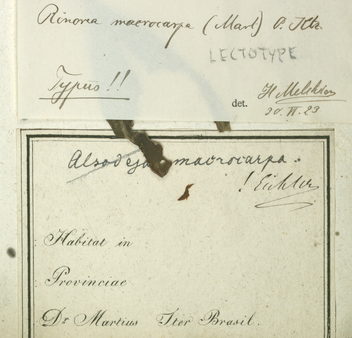 Rinorea macrocarpa (Mart) O. Ktze
LECTOTYPE
Typus!!
det. H Melchior
20. VI. 23
Alsodeja macrocarpa.
! Eichler
Habitat in
Provinciae
Dr Martius Iter Brasil.